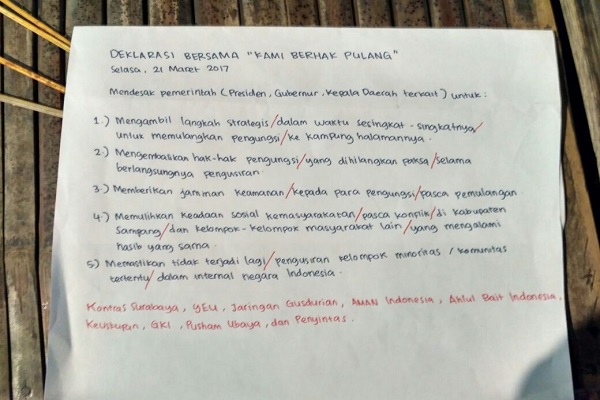 DEKLARASI BERSAMA "KAMI BERHAK PULANG"
Selasa, 21 Maret 2017
Mendesak pemerintah (Presiden, Gubernur, Kepala Daerah terkait) untuk:
1.) Mengambil langkah strategis/dalam waktu sesingkat-singkatnya/
untuk memulangkan pengungsi/ke kampung halamannya.
2.) Mengembalikan hak-hak pengungsi/yang dihilangkan paksa/selama
berlangsungnya pengusiran.
3.) Memberikan jaminan keamanan/kepada para pengungsi/pasca pemulangan.
4.) Memulihkan keadaan sosial kemasyarakatan/pasca konflik/di Kabupaten
Sampang/dan kelompok-kelompok masyarakat lain/yang mengalami
nasib yang sama.
5) Memastikan tidak terjadi lagi/pengusiran kelompok minoritas/komunitas
tertentu/dalam internal negara Indonesia.
Kontras Surabaya, YEU, Jaringan Gusdurian, AMAN Indonesia, Ahlul Bait Indonesia,
Keuskupan, GKI, Pusham Ubaya, dan Penyintas.